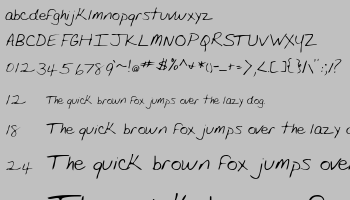 abcdefghijklmnopqrstuvwxyz
ABCDEFGHIJKLMNOPQRSTUVWXYZ
0123456789`~!@#$%^&*()-_=+>,<[]{}/\¨:;/?
12 The quick brown fox jumps over the lazy dog.
18 The quick brown fox jumps over the lazy
24 The quick brown fox jumps